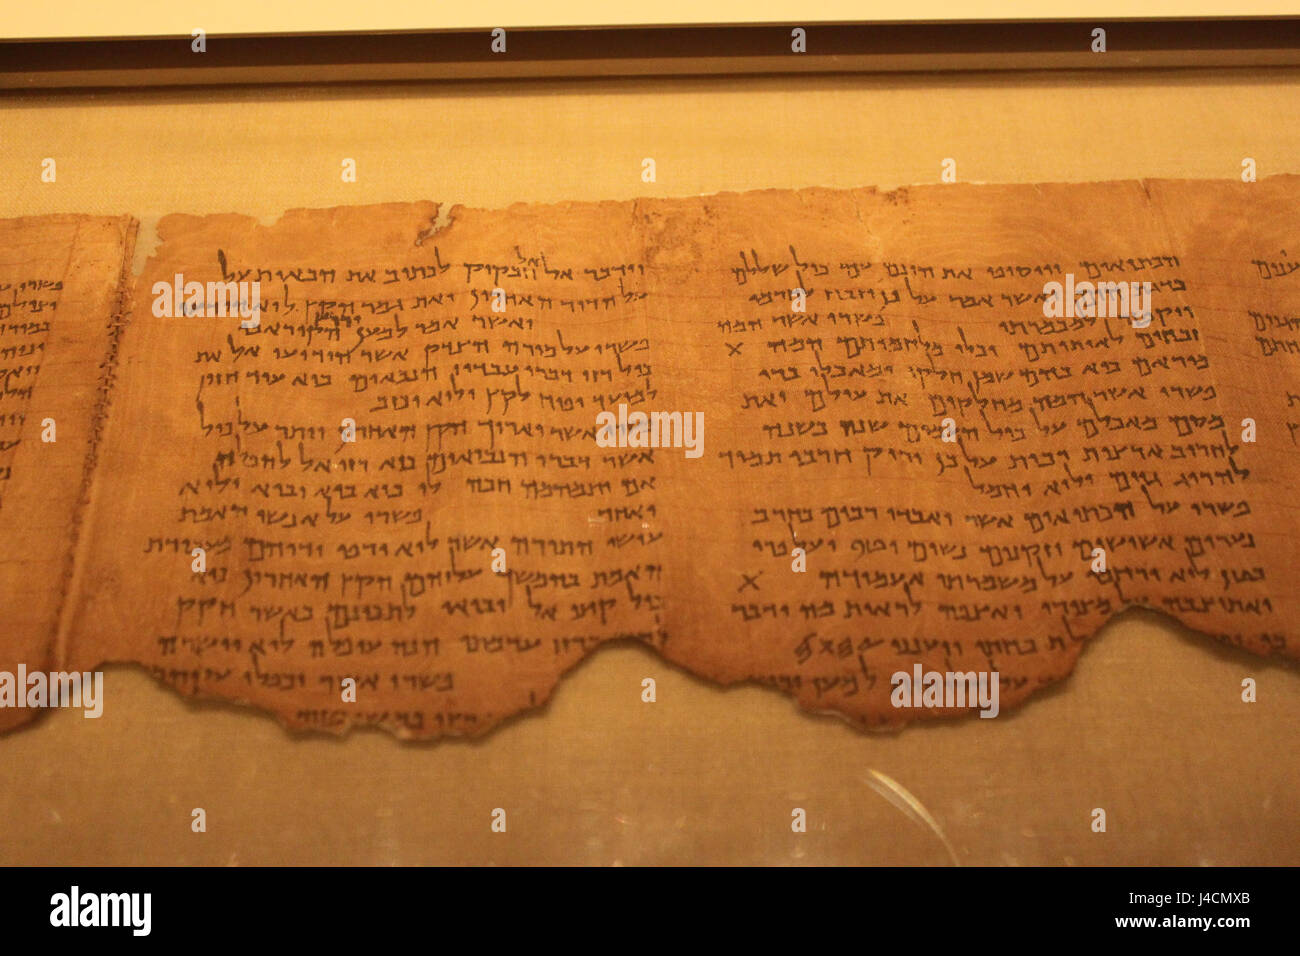 הכתיאים ויוסיפו את הונם עם כול שללם
כדגת הים ואשר אמר על כן יזבח לחרמו
ויקטר למכמרתו פשרו אשר המה
זבחים לאותותם וכלי מלחמותם המה X
מוראם כיא בהם שמן חלקו ומאכלו ברי
פשרו אשר המה מחלקים את עולם ואת
מסם מאכלם על כול העמים שנה בשנה
לחריב ארצות רבות על כן יריק חרבו תמיד
להרוג גוים ולוא יחמל
פשרו על הכתיאים אשר יאבדו רבים בחרב
נערים אשישים וזקנים נשים וטף ועל פרי
בטן לוא ירחמו על משמרתי אעמודה X
ואתיצבה על מצורי ואצפה לראות מה ידבר
בי תוכחתי ויענני 𐤉𐤄𐤅𐤄
למען
וידבר אל אל חבקוק לכתוב את הבאות על
על הדור האחרון ואת גמר הקץ לוא הודעו
ואשר אמר למען ירוץ הקורא בו
פשרו על מורה הצדק אשר הודיעו אל את
כול רזי דברי עבדיו הנבאים כיא עוד חזון
למועד יפיח לקץ ולוא יכזב
פשרו אשר יארוך הקץ האחרון ויתר על כול
אשר דברו הנביאים כיא רזי אל להפלה
אם יתמהמה חכה לו כיא בוא יבוא ולוא
יאחר פשרו על אנשי האמת
עושי התורה אשר לוא ירפו ידיהם מעבודת
האמת בהמשך עליהם הקץ האחרון כיא
כול קיצי אל יבואו לתכונם כאשר חקק
ברזי ערמתו הנה עופלה לוא יושרה
פשרו אשר יכפלו עליהם
a alamy
alamy
Image ID: J4CMXB
www.alamy.com